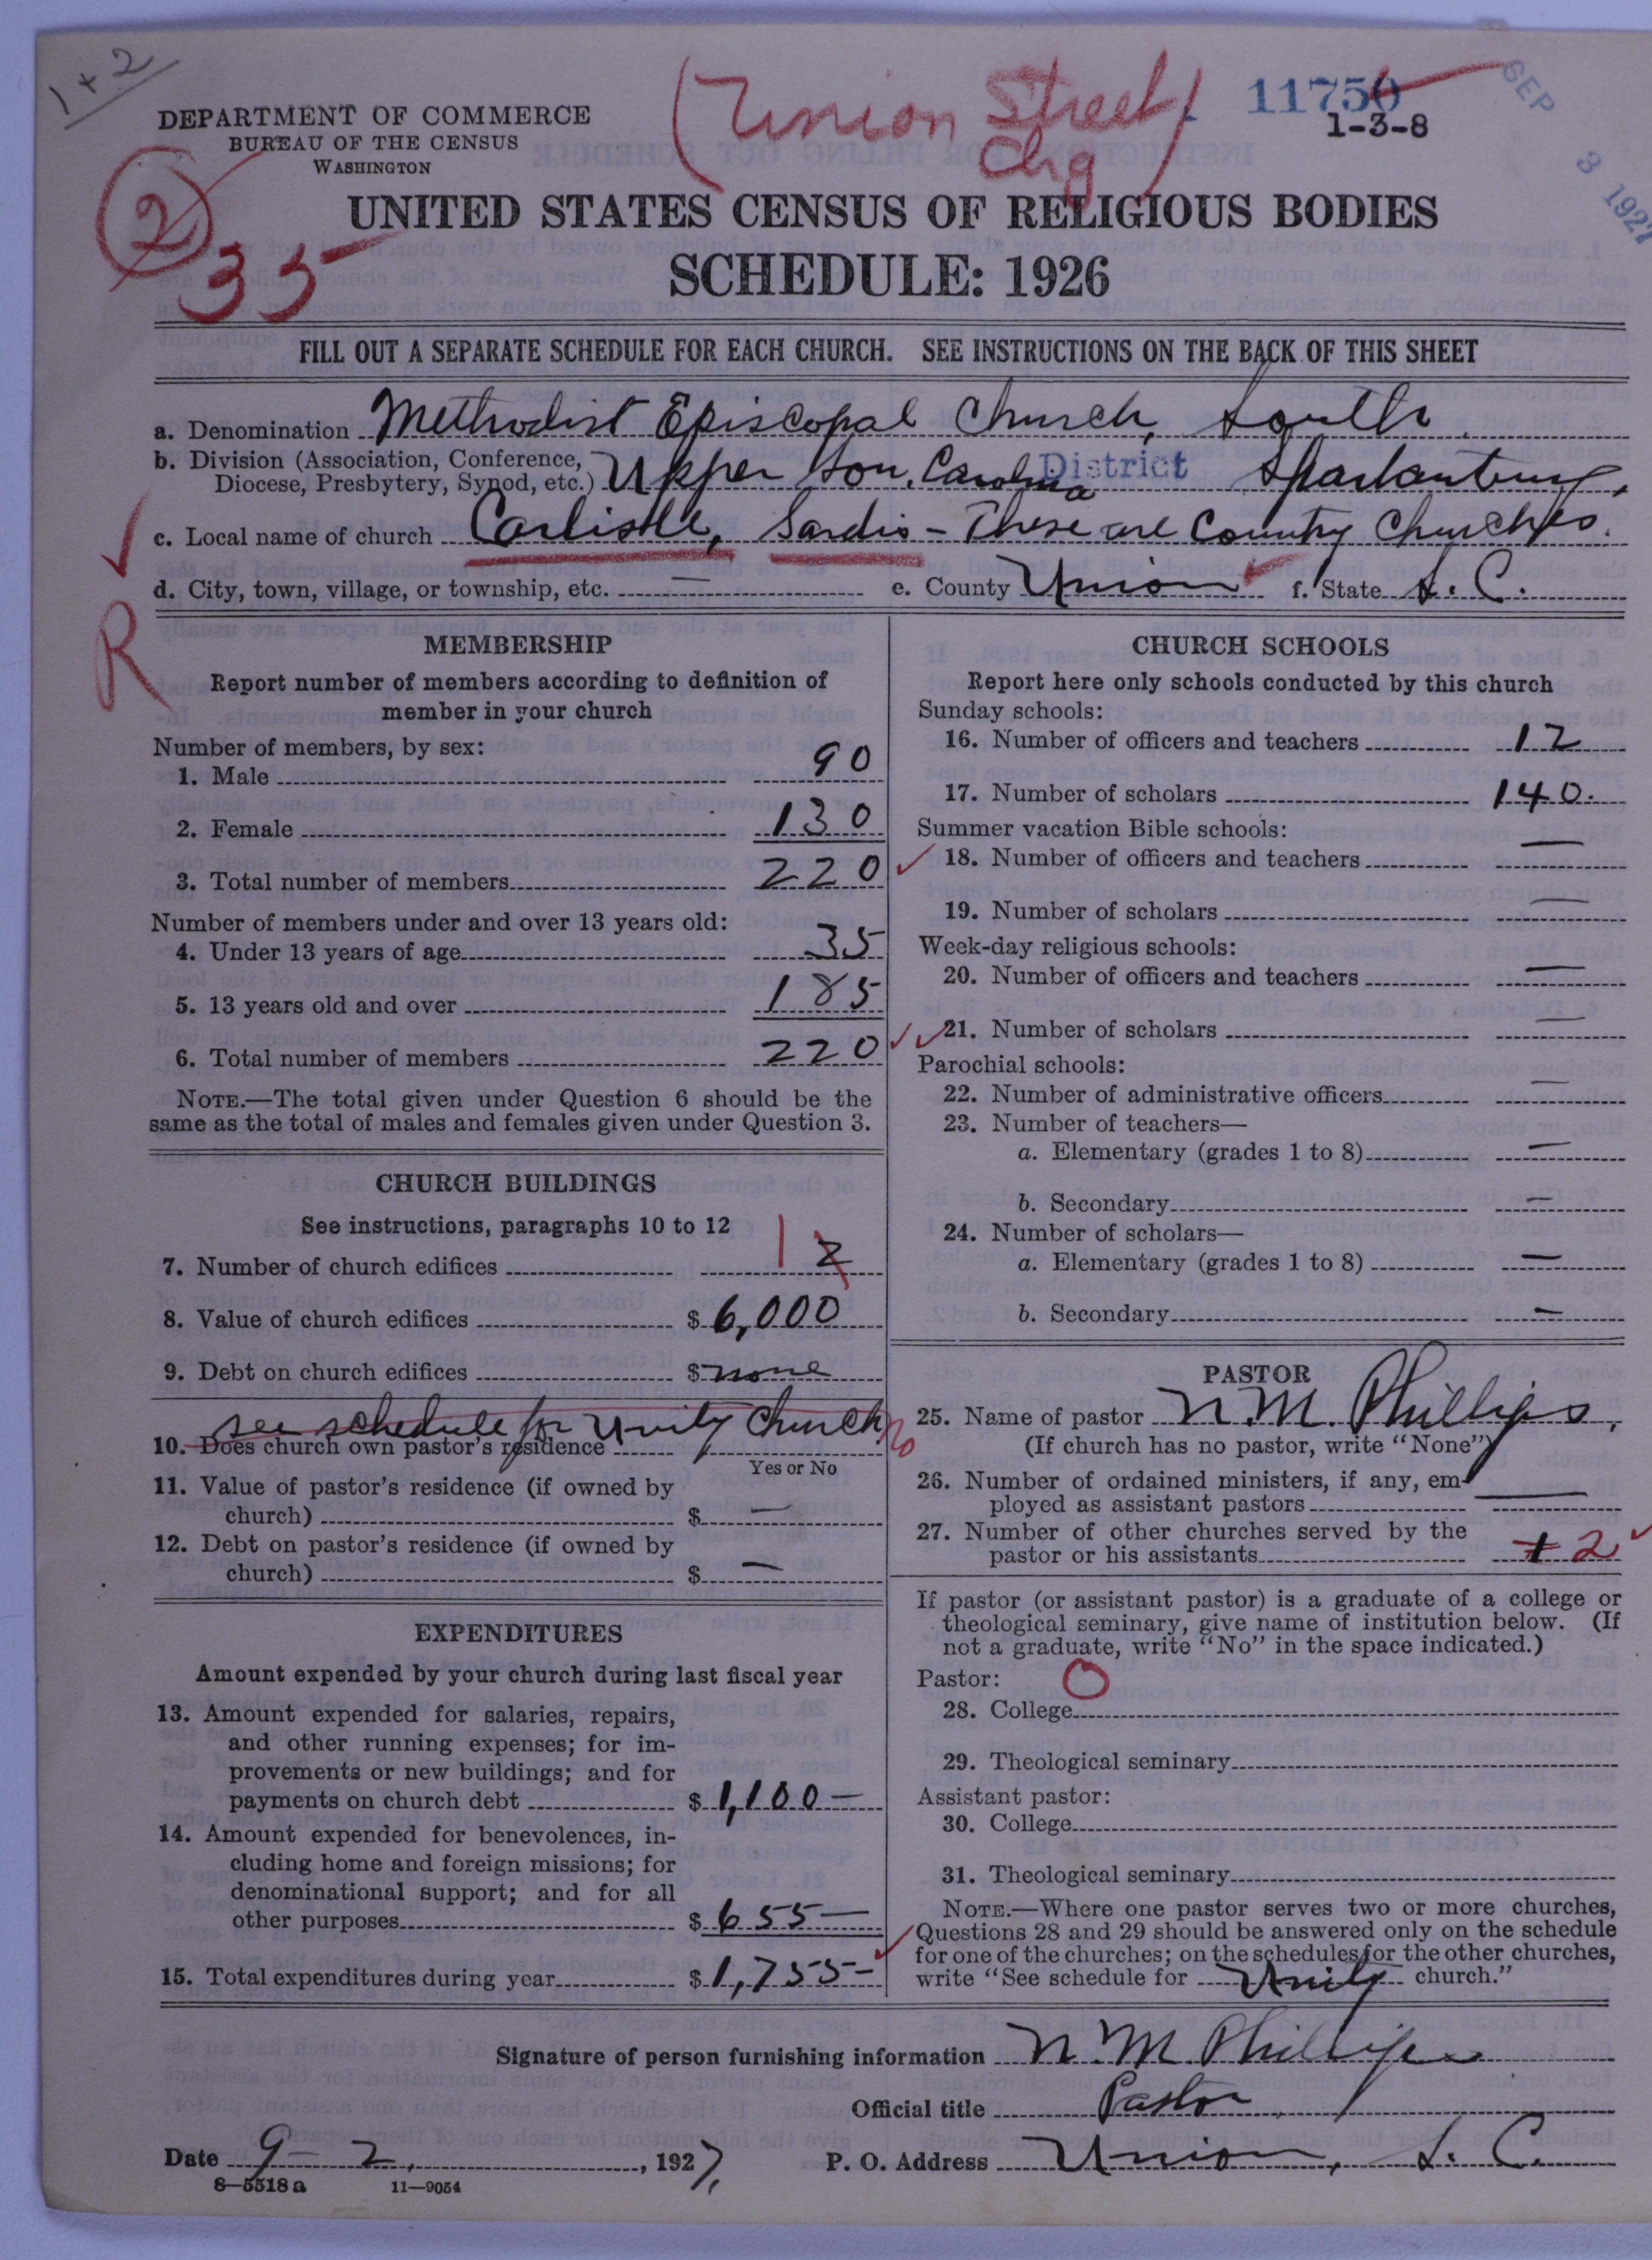 1+2
(Union Street
Chg)
11750
1-3-8
SEP 3 1927
DEPARTMENT OF COMMERCE
BUREAU OF THE CENSUS
WASHINGTON
2
35
UNITED STATES CENSUS OF RELIGIOUS BODIES
SCHEDULE: 1926
FILL OUT A SEPARATE SCHEDULE FOR EACH CHURCH. SEE INSTRUCTIONS ON THE BACK OF THIS SHEET
a. Denomination Methodist Episcopal Church, South
b. Division (Association, Conference, Diocese, Presbytery, Synod, etc.) Upper Sou. Carolina District Spartanburg.
c. Local name of church Carlisle, Sardis - These are Country Churches.
R
d. City, town, village, or township, etc. — e. County Union f. State S. C.
MEMBERSHIP
Report number of members according to definition of
member in your church
Number of members, by sex:
1. Male 90
2. Female 130
3. Total number of members 220
Number of members under and over 13 years old:
4. Under 13 years of age 35
5. 13 years old and over 185
6. Total number of members 220
NOTE.—The total given under Question 6 should be the
same as the total of males and females given under Question 3.
CHURCH BUILDINGS
See instructions, paragraphs 10 to 12
7. Number of church edifices 1 2
8. Value of church edifices $ 6,000
9. Debt on church edifices $ none
see schedule for Unity Church
10. Does church own pastor's residence no
Yes or No
11. Value of pastor's residence (if owned by
church) $ —
12. Debt on pastor's residence (if owned by
church) $ —
EXPENDITURES
Amount expended by your church during last fiscal year
13. Amount expended for salaries, repairs,
and other running expenses; for im-
provements or new buildings; and for
payments on church debt $ 1,100—
14. Amount expended for benevolences, in-
cluding home and foreign missions; for
denominational support; and for all
other purposes $ 655—
15. Total expenditures during year $ 1,755—
CHURCH SCHOOLS
Report here only schools conducted by this church
Sunday schools:
16. Number of officers and teachers 12
17. Number of scholars 140.
Summer vacation Bible schools:
18. Number of officers and teachers —
19. Number of scholars —
Week-day religious schools:
20. Number of officers and teachers —
21. Number of scholars —
Parochial schools:
22. Number of administrative officers —
23. Number of teachers—
a. Elementary (grades 1 to 8) —
b. Secondary —
24. Number of scholars—
a. Elementary (grades 1 to 8) —
b. Secondary —
PASTOR
25. Name of pastor N. M. Phillips,
(If church has no pastor, write "None")
26. Number of ordained ministers, if any, em-
ployed as assistant pastors —
27. Number of other churches served by the
pastor or his assistants 2
If pastor (or assistant pastor) is a graduate of a college or
theological seminary, give name of institution below. (If
not a graduate, write "No" in the space indicated.)
Pastor: O
28. College
29. Theological seminary
Assistant pastor:
30. College
31. Theological seminary
NOTE.—Where one pastor serves two or more churches,
Questions 28 and 29 should be answered only on the schedule
for one of the churches; on the schedules for the other churches,
write "See schedule for Unity church."
Signature of person furnishing information N. M. Phillips
Official title Pastor
Date 9-2, 1927, P. O. Address Union, S. C.
8—5518 a 11—9054